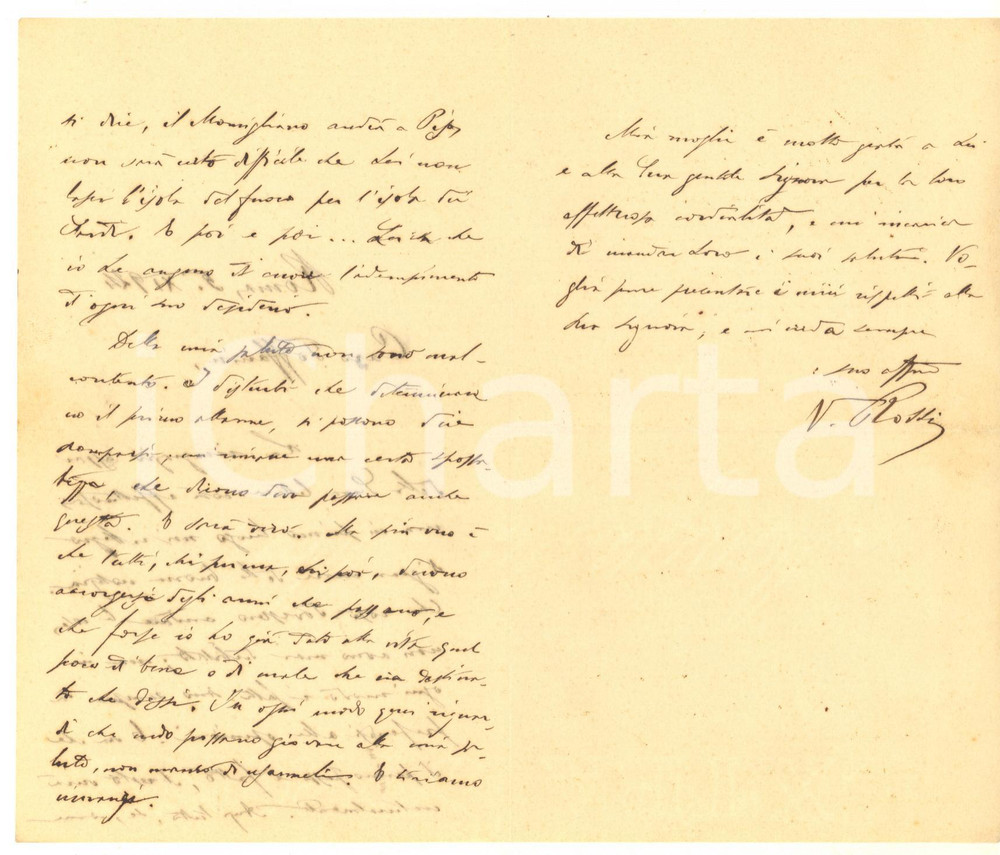 si dice, il Momigliano andrà a Pisa,
non sarà certo difficile che Lei non
lasci l'isola del fuoco per l'isola dei
Sardi. E poi e poi... Lasci che
io Le auguri di cuore l'adempimento
di ogni suo desiderio.
Della mia salute non sono mal-
contento. I disturbi che determinaro-
no il primo allarme, si possono dire
scomparsi; ma rimane una certa spossa-
tezza, che dicono deve passare anche
questa. E sarà vero. Ma più vero è
che tutti, chi prima, chi poi, devono
accorgersi degli anni che passano, e
che forse io ho già dato alla vita quel
poco di bene o di male che era destina-
to che dessi. In ogni modo quei riguar-
di che credo possano giovare alla mia sa-
lute, non manco di usarmeli. E tiriamo
innanzi.
Mia moglie è molto grata a Lei
e alla Sua gentile Signora per la loro
affettuosa cordialità, e mi incarica
di mandar Loro i suoi saluti. Vo-
glia pure presentare i miei rispetti alla
Sua Signora, e mi creda sempre
suo aff.mo
V. Rossi
iCharta